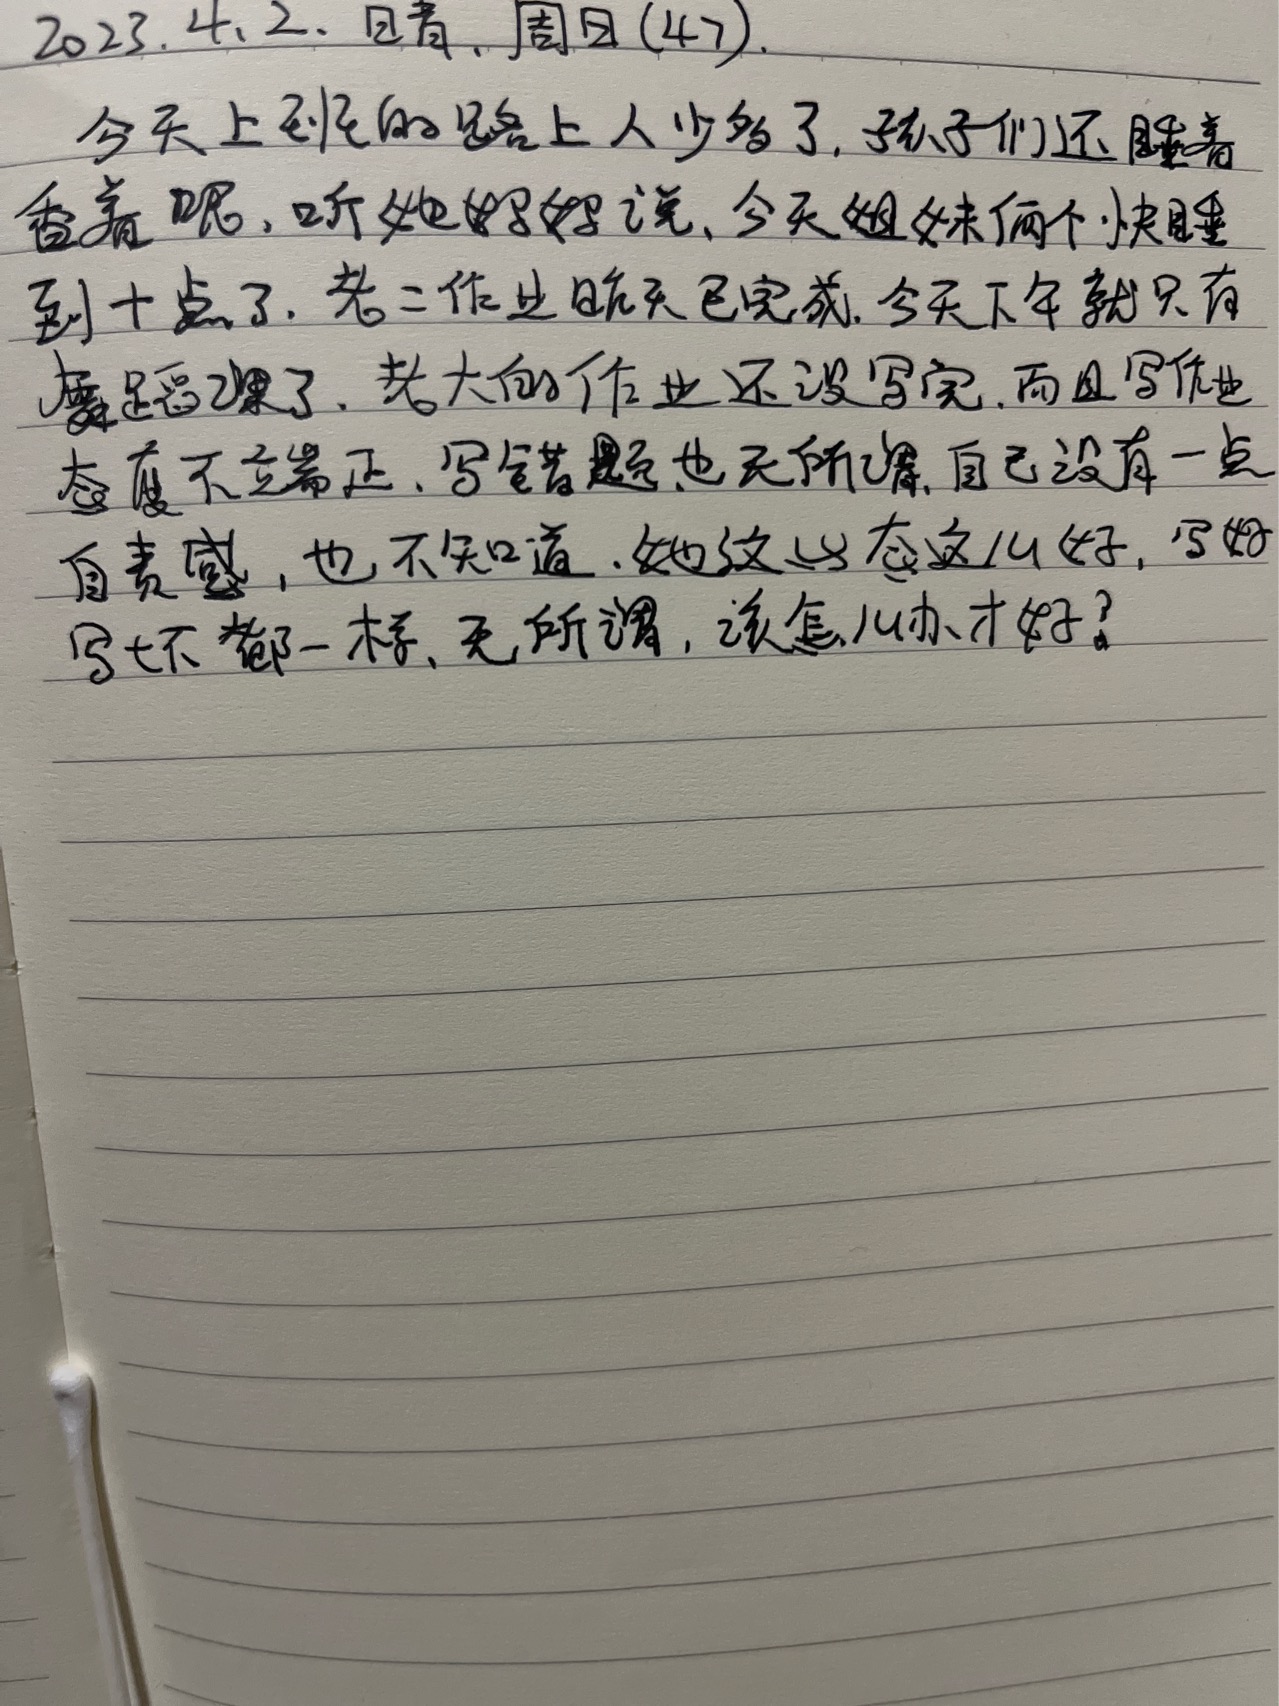 2023.4.2.晴、周日(47).
今天上到的路上人少多了,孩子们还睡着
香着呢,听她好好说、今天姐妹俩个快睡
到十点了.老二作业昨天已完成.今天下午就只有
舞蹈课了、老大的作业还没写完.而且写作业
态度不端正、写错题也无所谓.自己没有一点
自责感,也不知道.她这心态这么好,写好
写坏都一样、无所谓,该怎么办才好?